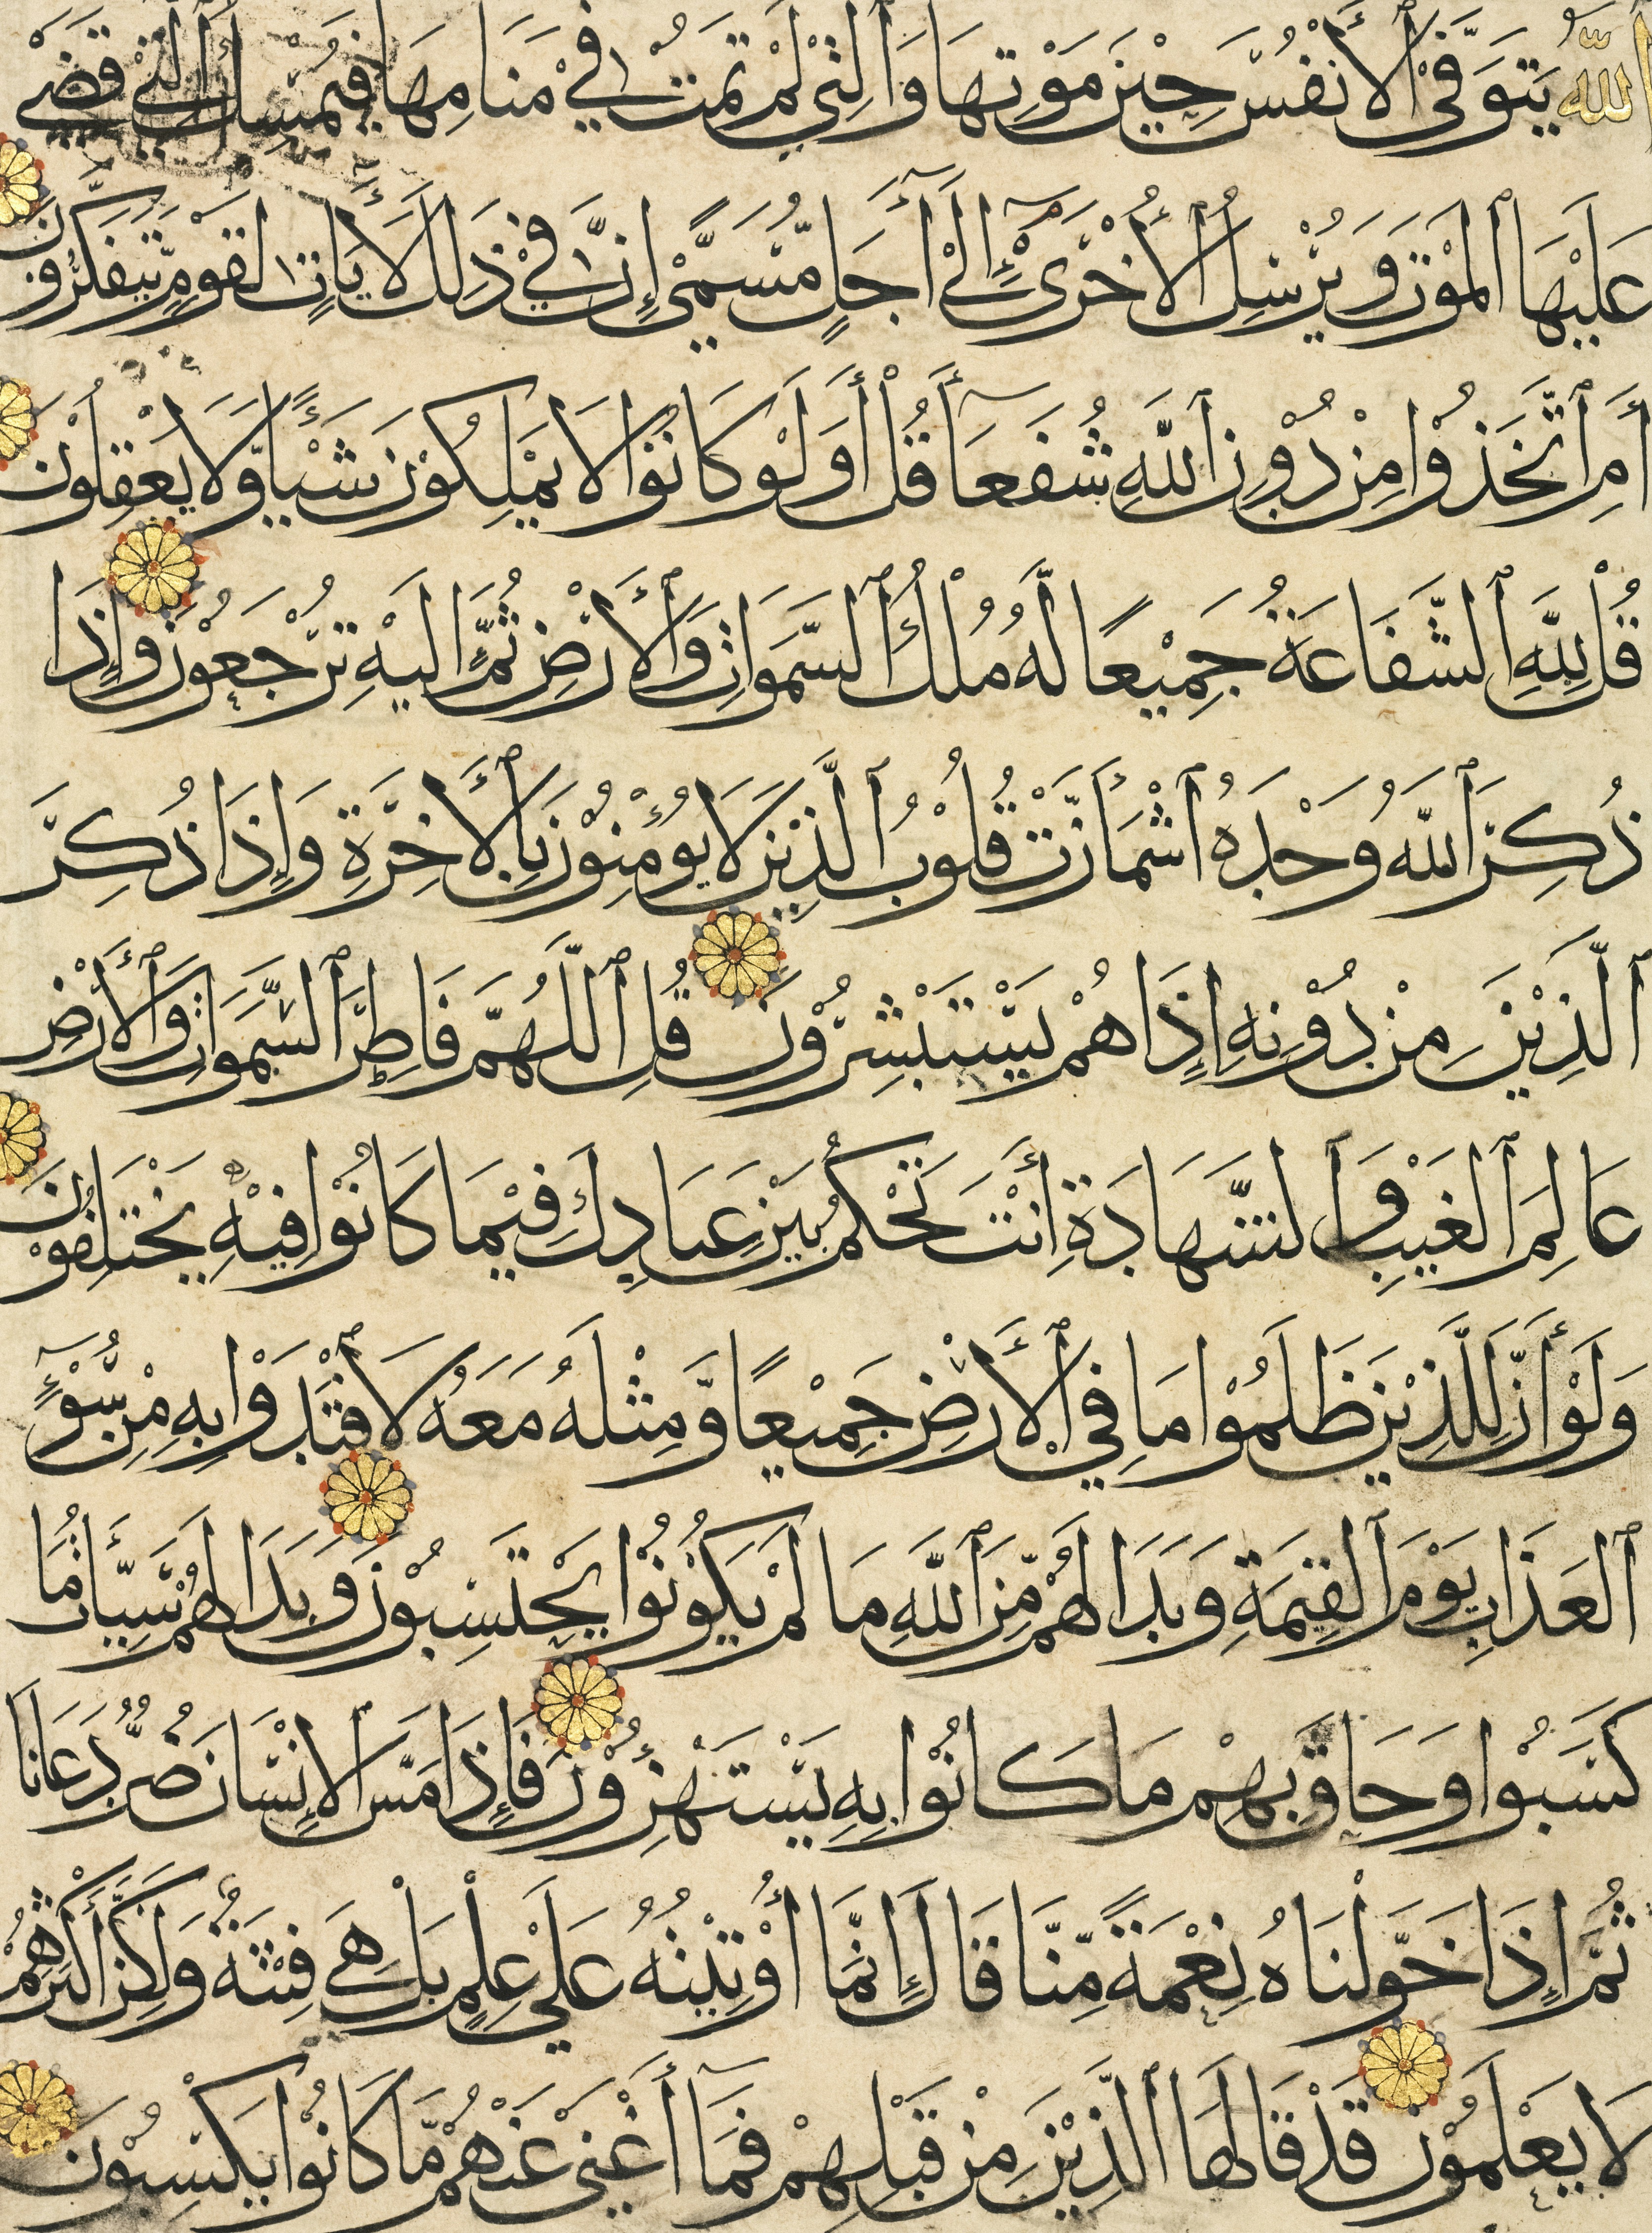 ٱللَّهُ يَتَوَفَّى ٱلْأَنْفُسَ حِيْنَ مَوْتِهَا وَٱلَّتِيْ لَمْ تَمُتْ فِيْ مَنَامِهَا فَيُمْسِكُ ٱلَّتِيْ قَضَىٰ
عَلَيْهَا ٱلْمَوْتَ وَيُرْسِلُ ٱلْأُخْرَىٰٓ إِلَىٰٓ أَجَلٍ مُّسَمًّى إِنَّ فِيْ ذَلِكَ لَآيَاتٍ لِقَوْمٍ يَّتَفَكَّرُونَ
أَمِ ٱتَّخَذُوْا مِنْ دُوْنِ ٱللَّهِ شُفَعَآءَ قُلْ أَوَلَوْ كَانُوْا لَا يَمْلِكُوْنَ شَيْئًا وَّلَا يَعْقِلُوْنَ
قُلْ لِلَّهِ ٱلشَّفَاعَةُ جَمِيْعًا لَّهُ مُلْكُ ٱلسَّمَوَاتِ وَٱلْأَرْضِ ثُمَّ إِلَيْهِ تُرْجَعُوْنَ وَإِذَا
ذُكِرَ ٱللَّهُ وَحْدَهُ ٱشْمَأَزَّتْ قُلُوْبُ ٱلَّذِيْنَ لَا يُؤْمِنُوْنَ بِٱلْأَخِرَةِ وَإِذَا ذُكِرَ
ٱلَّذِيْنَ مِنْ دُوْنِهِ إِذَا هُمْ يَسْتَبْشِرُوْنَ قُلِ ٱللَّهُمَّ فَاطِرَ ٱلسَّمَوَاتِ وَٱلْأَرْضِ
عَالِمَ ٱلْغَيْبِ وَٱلشَّهَادَةِ أَنْتَ تَحْكُمُ بَيْنَ عِبَادِكَ فِيْمَا كَانُوْا فِيْهِ يَخْتَلِفُوْنَ
وَلَوْ أَنَّ لِلَّذِيْنَ ظَلَمُوْا مَا فِي ٱلْأَرْضِ جَمِيْعًا وَّمِثْلَهُ مَعَهُ لَٱفْتَدَوْا بِهِ مِنْ سُوْٓءِ
ٱلْعَذَابِ يَوْمَ ٱلْقِيَمَةِ وَبَدَا لَهُمْ مِّنَ ٱللَّهِ مَا لَمْ يَكُوْنُوْا يَحْتَسِبُوْنَ وَبَدَا لَهُمْ سَيِّئَاتُ مَا
كَسَبُوْا وَحَاقَ بِهِمْ مَا كَانُوْا بِهِ يَسْتَهْزِءُوْنَ فَإِذَا مَسَّ ٱلْإِنْسَانَ ضُرٌّ دَعَانَا
ثُمَّ إِذَا خَوَّلْنَاهُ نِعْمَةً مِّنَّا قَالَ إِنَّمَا أُوْتِيْتُهُ عَلَىٰ عِلْمٍ بَلْ هِيَ فِتْنَةٌ وَلَكِنَّ أَكْثَرَهُمْ
لَا يَعْلَمُوْنَ قَدْ قَالَهَا ٱلَّذِيْنَ مِنْ قَبْلِهِمْ فَمَآ أَغْنَىٰ عَنْهُمْ مَّا كَانُوْا يَكْسِبُوْنَ